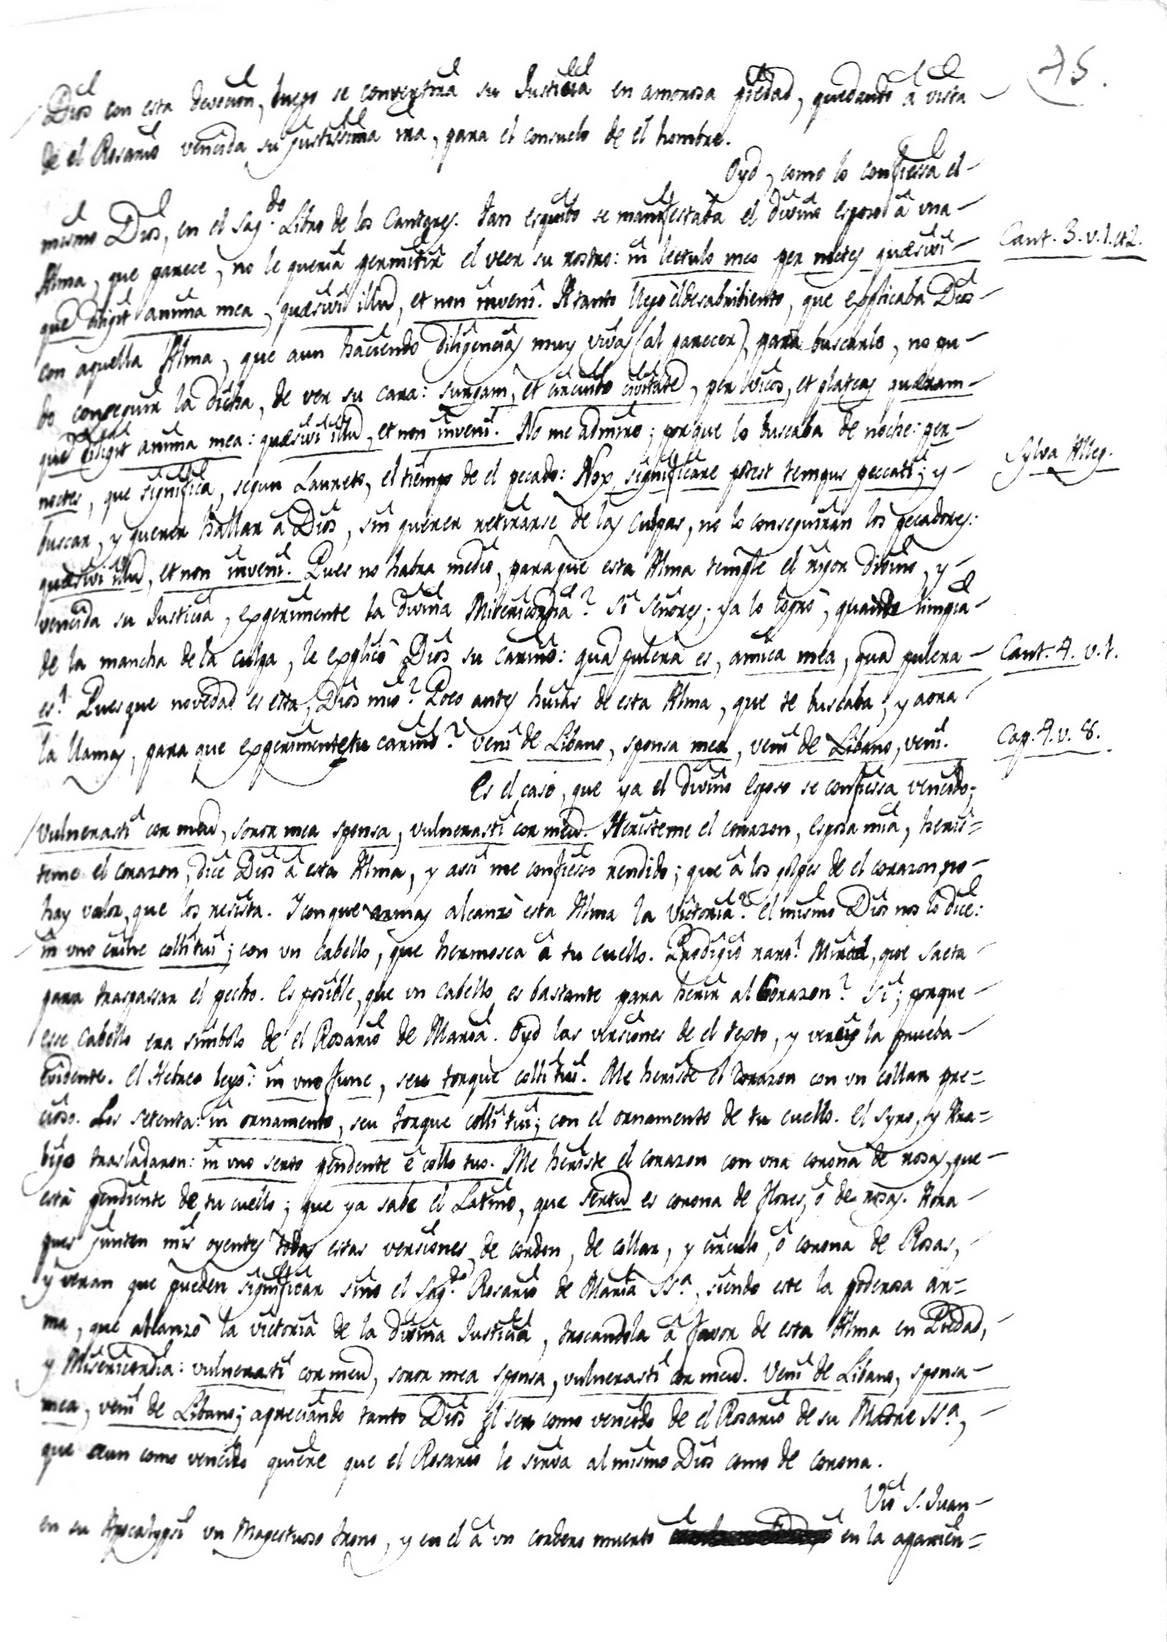 45.
Dios con esta devocion, luego se convertirá su Justicia en amorosa piedad, quedando â vista
de el Rosario vencida su justissima ira, para el consuelo de el hombre.
Oyd, como lo confiessa el
mismo Dios, en el Sag.do Libro de los Cantares. Tan esquibo se manifestaba el divino esposo â vna
Cant. 3. v. 1. et 2.
Alma, que parece, no le queria permitir el veer su rostro: in lectulo meo per noctes quæsivi
que diligit anima mea, quæsivi illud, et non inveni. A tanto llegò el desabrimiento, que explicaba Dios
con aquella Alma, que aun haciendo diligencias muy vivas (al parecer) para buscarlo, no pu-
do conseguir la dicha, de ver su cara: surgam, et circuibo civitate, per vicos, et plateas quæram
que diligit anima mea: quæsivi illu, et non inveni. No me admiro; porque lo buscaba de noche: per
Sylva Alleg.
noctes, que significa, segun Laureto, el tiempo de el pecado: Nox significare potest tempus peccati; y
buscar, y querer hallar â Dios, sin querer retirarse de las culpas, no lo conseguiran los pecadores:
quæsivi illud, et non inveni. Pues no habra medio, paraque esta Alma temple el rigor divino, y
vencida su Justicia, experimente la divina Misericordia? Si señores; ya lo logrò, quando limpia
de la mancha de la culpa, le explicò Dios su cariño: qua pulcra es, amica mea, qua pulcra
Cant. 4. v. 1.
es! Pues que novedad es esta, Dios mio? Poco antes huias de esta Alma, que te buscaba, y aora
la llamas, para que experimente tu cariño? veni de Libano, sponsa mea, veni de Libano, veni.
Cap. 4. v. 8.
Es el caso, que ya el divino Esposo se confiessa vencido;
vulnerasti cor meu, soror mea sponsa, vulnerasti cor meu. Heristeme el corazon, esposa mia, heris=
teme el corazon, dice Dios â esta Alma, y assi me confiesso rendido; que â los golpes de el corazon no
hay valor, que los resista. Y con que armas alcanzò esta Alma la victoria? el mismo Dios nos lo dice:
in vno crine colli tui; con vn cabello, que hermosea â tu cuello. Prodigio raro! Mirad, que saeta
para traspassar el pecho. Es posible, que vn cabello es bastante para herir al Corazon? Si; porque
esse cabello era simbolo de el Rosario de Maria. Oyd las versiones de el texto, y vereis la prueba
evidente. el Hebreo leyò: in vno fune, seu torque colli tui. Me heriste el Corazon con vn collar pre=
cioso. Los setenta: in ornamento, seu torque colli tui; con el ornamento de tu cuello. el Syro, y Ara=
bigo trasladaron: in vno serto pendente è collo tuo. Me heriste el corazon con vna corona de rosas, que
està pendiente de tu cuello; que ya sabe el Latino, que sertud es corona de flores, ô de rosas. Aora
pues junten mis oyentes todas estas versiones de cordon, de collar, y circulo, ô corona de Rosas,
y veran que pueden significar sino el Sag.do Rosario de Maria SS.a, siendo este la poderosa ar=
ma, que alcanzò la victoria de la divina Justicia, trocandola â favor de esta Alma en Piedad,
y Misericordia: vulnerasti cor meu, soror mea sponsa, vulnerasti cor meu. Veni de Libano, sponsa
mea, veni de Libano; apreciando tanto Dios el ser como vencido de el Rosario de su Madre SS.a,
que aun como vencido quiere que el Rosario le sirva al mismo Dios como de corona.
Viò S. Juan
en su Apocalypsi vn Magestuoso trono, y en el â vn cordero muerto en la aparien=